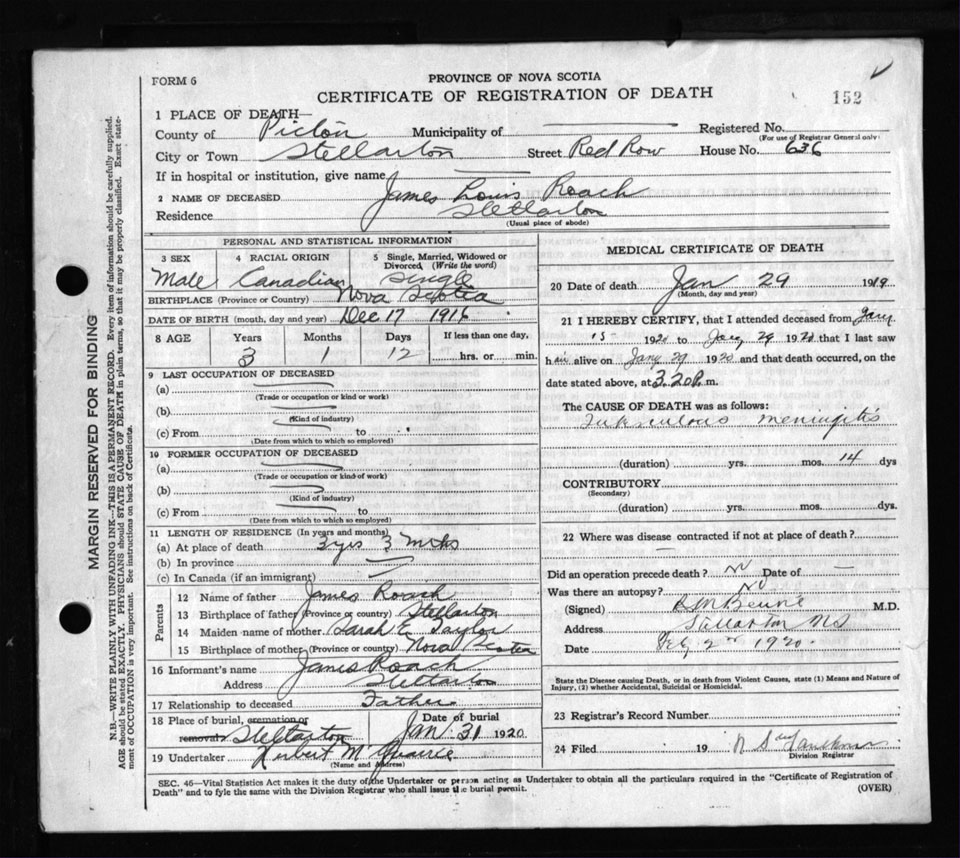 FORM 6
PROVINCE OF NOVA SCOTIA
CERTIFICATE OF REGISTRATION OF DEATH
152
1 PLACE OF DEATH—
County of Pictou Municipality of Registered No.
(For use of Registrar General only)
City or Town Stellarton Street Red Row House No. 636
If in hospital or institution, give name
2 NAME OF DECEASED James Louis Roach
Residence Stellarton
(Usual place of abode)
PERSONAL AND STATISTICAL INFORMATION
3 SEX 4 RACIAL ORIGIN 5 Single, Married, Widowed or Divorced, (Write the word)
Male Canadian Single
BIRTHPLACE (Province or Country) Nova Scotia
DATE OF BIRTH (month, day and year) Dec 17 1916
8 AGE Years Months Days If less than one day,
3 1 12 hrs. or min.
9 LAST OCCUPATION OF DECEASED
(a)
(Trade or occupation or kind or work)
(b)
(Kind of industry)
(c) From to
(Date from which to which so employed)
10 FORMER OCCUPATION OF DECEASED
(a)
(Trade or occupation or kind or work)
(b)
(Kind of industry)
(c) From to
(Date from which to which so employed)
11 LENGTH OF RESIDENCE (In years and months)
(a) At place of death 3 yrs 3
(b) In province
(c) In Canada (if an immigrant)
Parents
12 Name of father James Roach
13 Birthplace of father (Province or country) Stellarton
14 Maiden name of mother Sarah E Taylor
15 Birthplace of mother (Province or country) Nova Scotia
16 Informant's name James Roach
Address Stellarton
17 Relationship to deceased Father
18 Place of burial, cremation or removal Stellarton Date of burial Jan 31 1920
19 Undertaker Herbert
(Name and Address)
MEDICAL CERTIFICATE OF DEATH
20 Date of death Jan 29 1919
(Month, day and year)
21 I HEREBY CERTIFY, that I attended deceased from Jany
15 1920 to Jany 29 1920 that I last saw
h im alive on Jany 29 1920 and that death occurred, on the
date stated above, at 3.20 P.m.
The CAUSE OF DEATH was as follows:
Tuberculous meningitis
(duration) yrs. mos. 14 dys
CONTRIBUTORY
(Secondary)
(duration) yrs. mos. dys.
22 Where was disease contracted if not at place of death?
Did an operation precede death? No Date of —
Was there an autopsy? No
(Signed) M.D.
Address Stellarton NS
Date Feb 2nd 1920
State the Disease causing Death, or in death from Violent Causes, state (1) Means and Nature of
Injury, (2) whether Accidental, Suicidal or Homicidal.
23 Registrar's Record Number
24 Filed 19
Division Registrar
SEC. 46—Vital Statistics Act makes it the duty of the Undertaker or person acting as Undertaker to obtain all the particulars required in the "Certificate of Registration of
Death" and to fyle the same with the Division Registrar who shall issue the burial permit. (OVER)
MARGIN RESERVED FOR BINDING
N.B.—WRITE PLAINLY WITH UNFADING INK—THIS IS A PERMANENT RECORD. Every item of information should be carefully supplied.
AGE should be stated EXACTLY. PHYSICIANS should STATE CAUSE OF DEATH in plain terms, so that it may be properly classified. Exact state-
ment of OCCUPATION is very important. See instructions on back of Certificate.